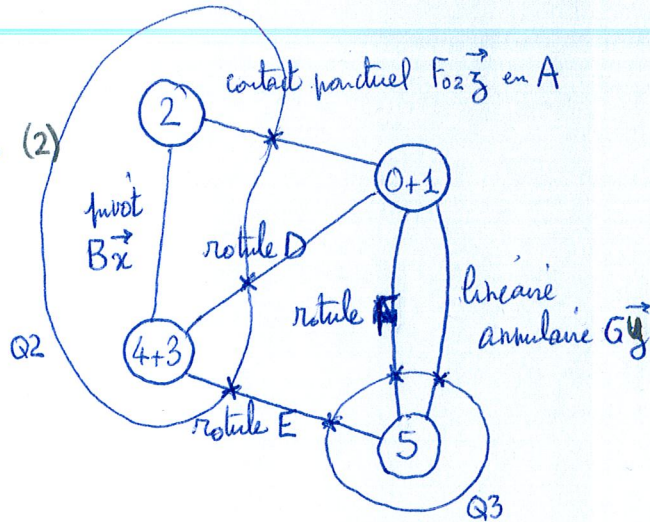 contact ponctuel F02 z⃗ en A
2
(2)
0+1
pivot
Bx⃗
rotule D
linéaire
annulaire Gy⃗
rotule
Q2
4+3
rotule E
5
Q3